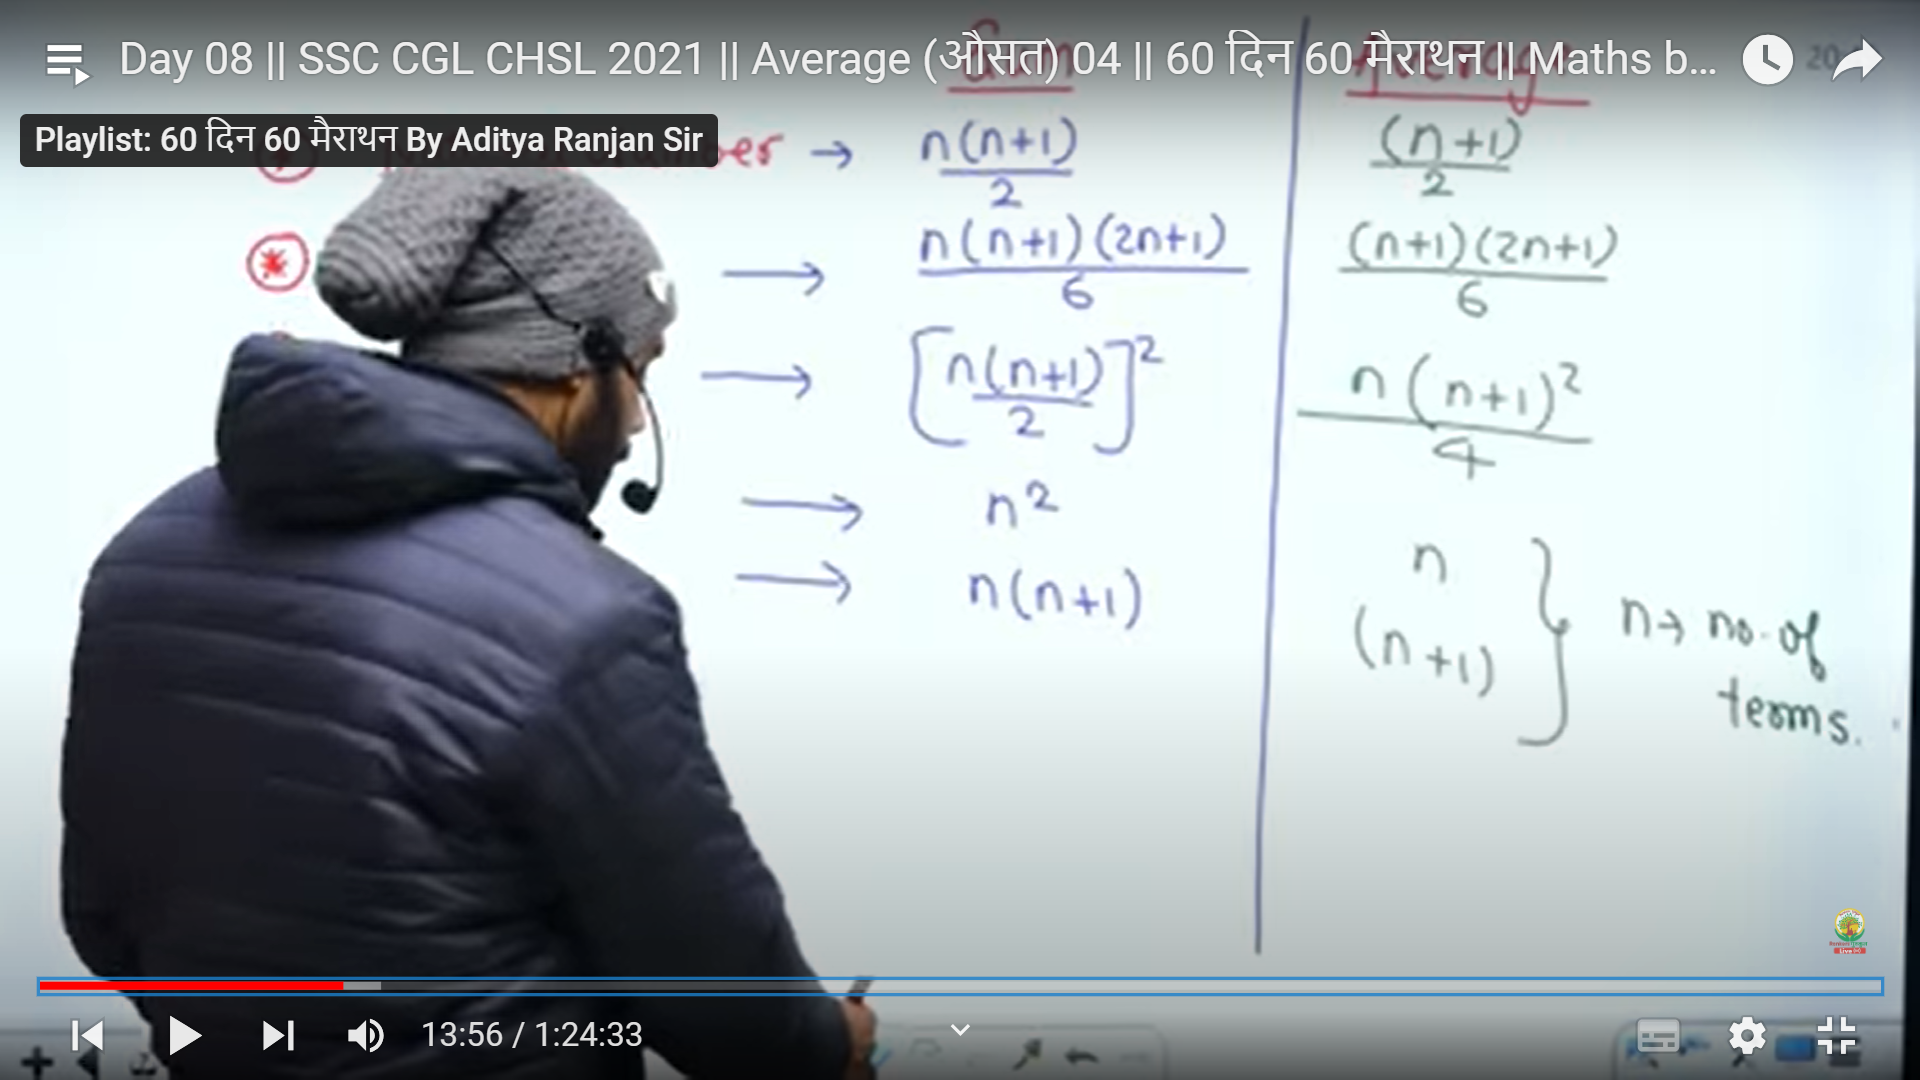 Day 08 || SSC CGL CHSL 2021 || Average (औसत) 04 || 60 दिन 60 मैराथन || Maths b...
Playlist: 60 दिन 60 मैराथन By Aditya Ranjan Sir
Average
→ n(n+1)/2 (n+1)/2
→ n(n+1)(2n+1)/6 (n+1)(2n+1)/6
→ [n(n+1)/2]² n(n+1)²/4
→ n² n
→ n(n+1) (n+1)
n→ no. of
terms.
13:56 / 1:24:33